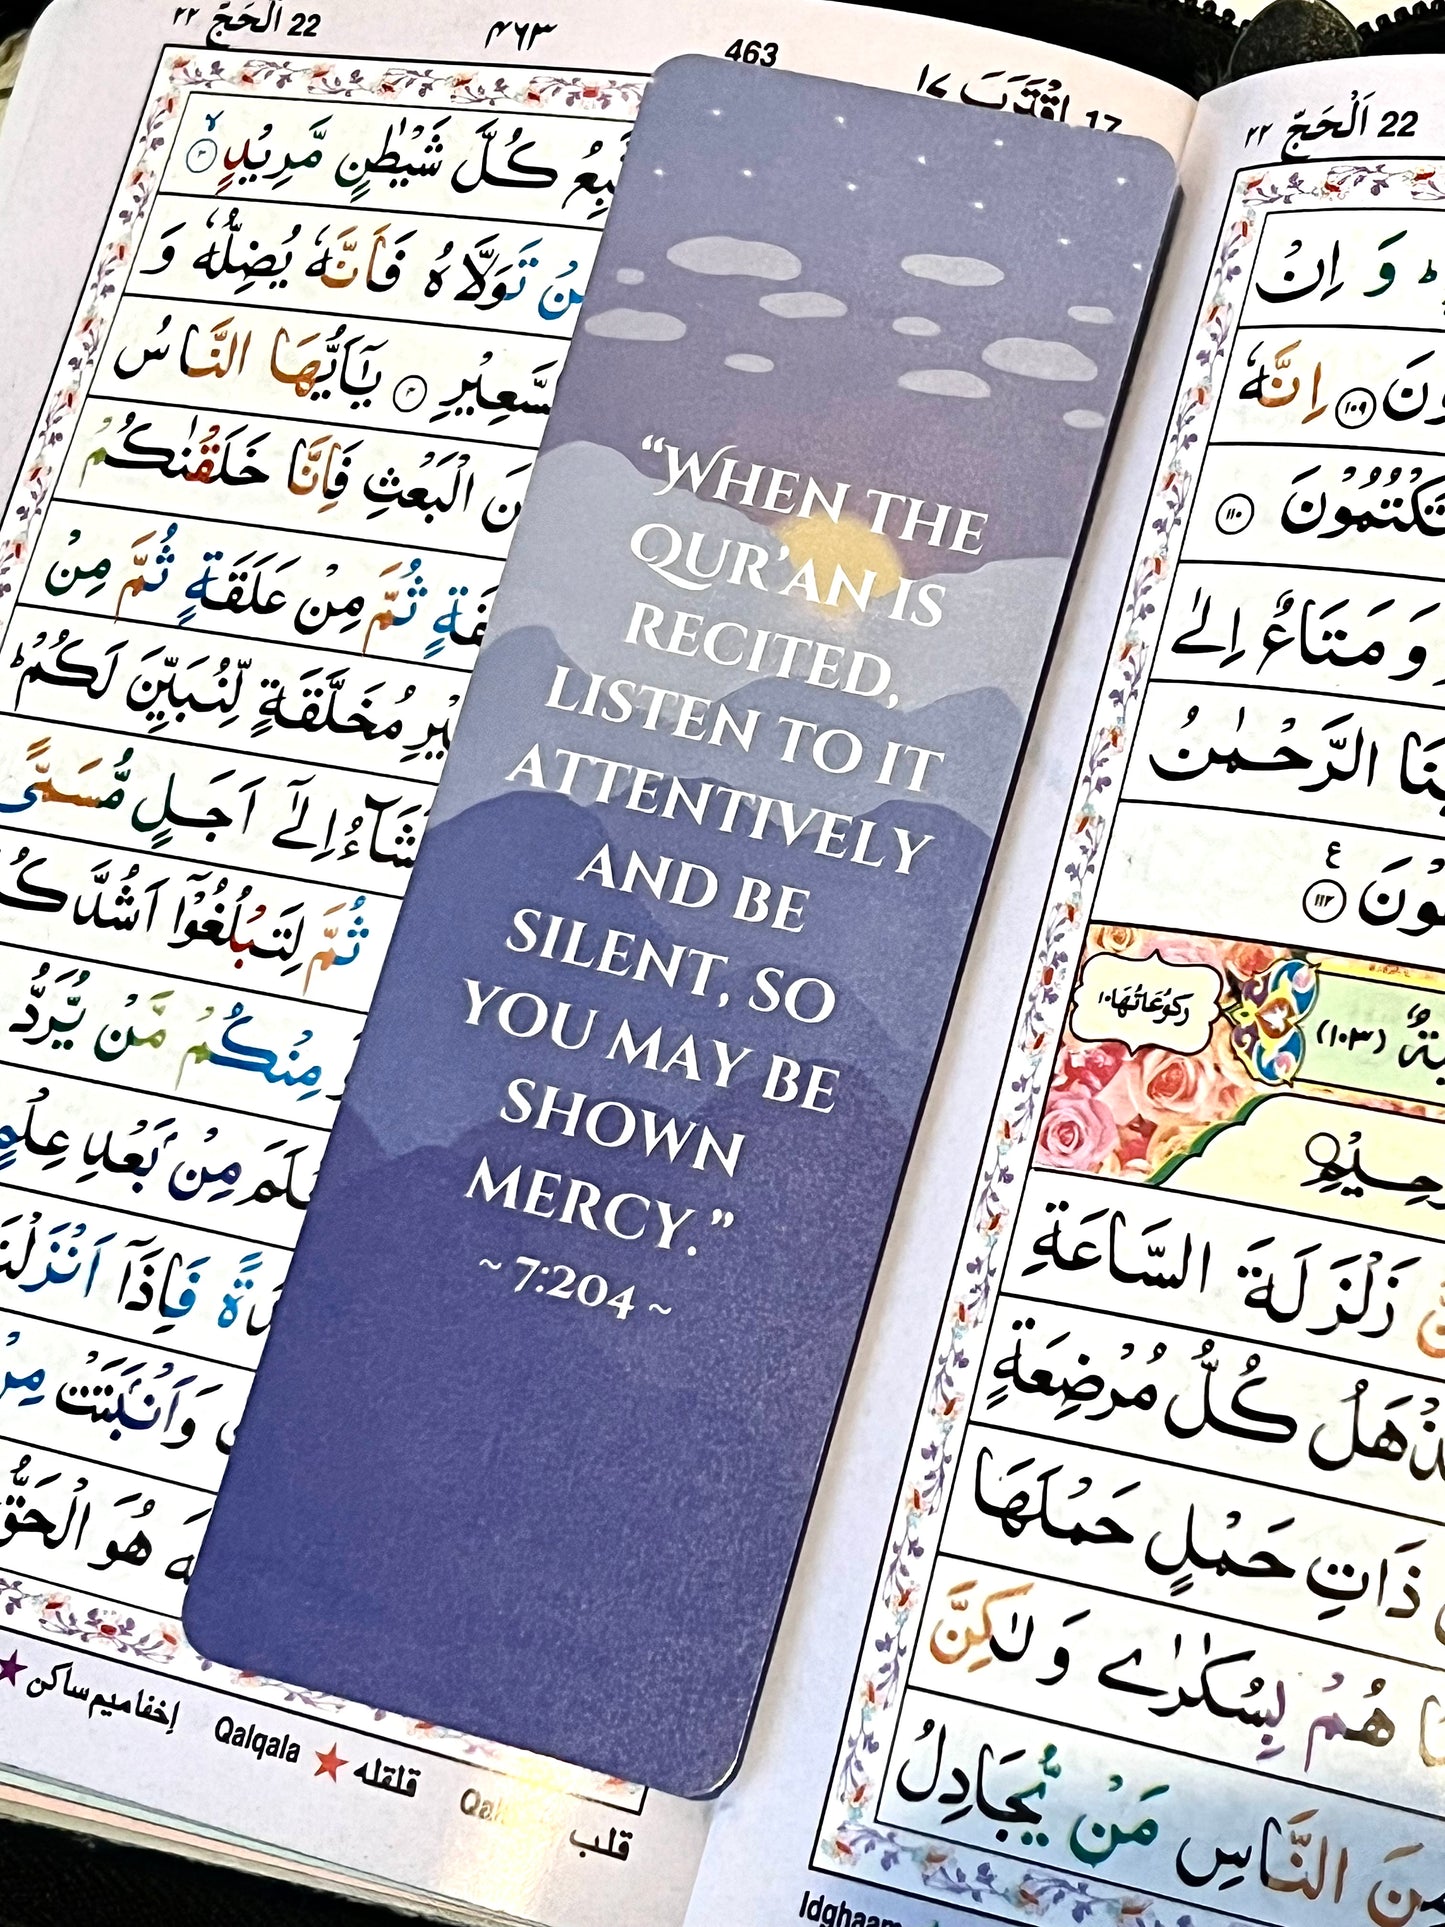 22 اَلْحَجّ ٢٢
١٧ اِقْتَرَبَ 17
كُلَّ شَيْطٰنٍ مَّرِيْدٍ ۙ﴿٣﴾
تَوَلَّاهُ فَاَنَّهٗ يُضِلُّهٗ وَ
السَّعِيْرِ ﴿٤﴾ يٰۤاَيُّهَا النَّاسُ
الْبَعْثِ فَاِنَّا خَلَقْنٰكُمْ
ثُمَّ مِنْ عَلَقَةٍ ثُمَّ مِنْ
مُخَلَّقَةٍ لِّنُبَيِّنَ لَكُمْ ؕ
اِلٰۤى اَجَلٍ مُّسَمًّى
ثُمَّ لِتَبْلُغُوْۤا
مِنْكُمْ مَّنْ يُّرَدُّ
مِنْۢ بَعْدِ عِلْمٍ
فَاِذَاۤ
وَاَنْۢبَتَتْ مِنْ
هُوَ الْحَقُّ
إخفا ميم ساكن Qalqala قلقله
قلب
463 ۴۶۳
“WHEN THE
QUR’AN IS
RECITED,
LISTEN TO IT
ATTENTIVELY
AND BE
SILENT, SO
YOU MAY BE
SHOWN
MERCY.”
~ 7:204 ~
22 اَلْحَجّ ٢٢
وَ اِنْ
﴿١٠٩﴾ اِنَّهٗ
تَكْتُمُوْنَ ﴿١١٠﴾
وَ مَتَاعٌ اِلٰى
الرَّحْمٰنُ
﴿١١٢﴾ ع
(١٠٣) رُكُوْعَاتُهَا ١٠
زَلْزَلَةَ السَّاعَةِ
كُلُّ مُرْضِعَةٍ
ذَاتِ حَمْلٍ حَمْلَهَا
هُمْ بِسُكٰرٰى وَ لٰكِنَّ
النَّاسِ مَنْ يُّجَادِلُ